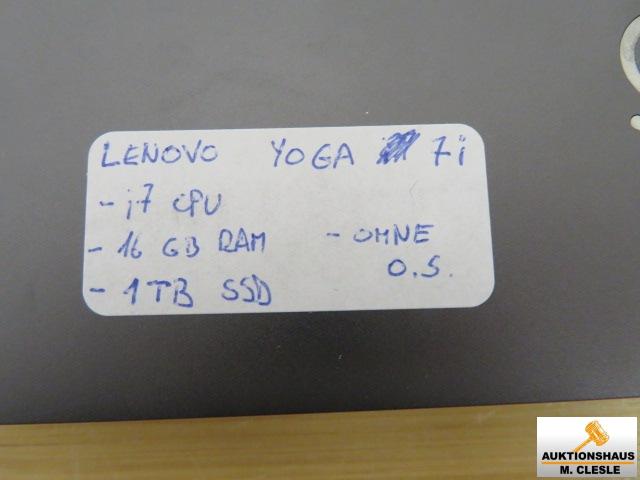 LENOVO YOGA 7i
- i7 CPU
- 16 GB RAM
- 1TB SSD
- OMNE
O.S.
AUKTIONSHAUS
M. CLESLE